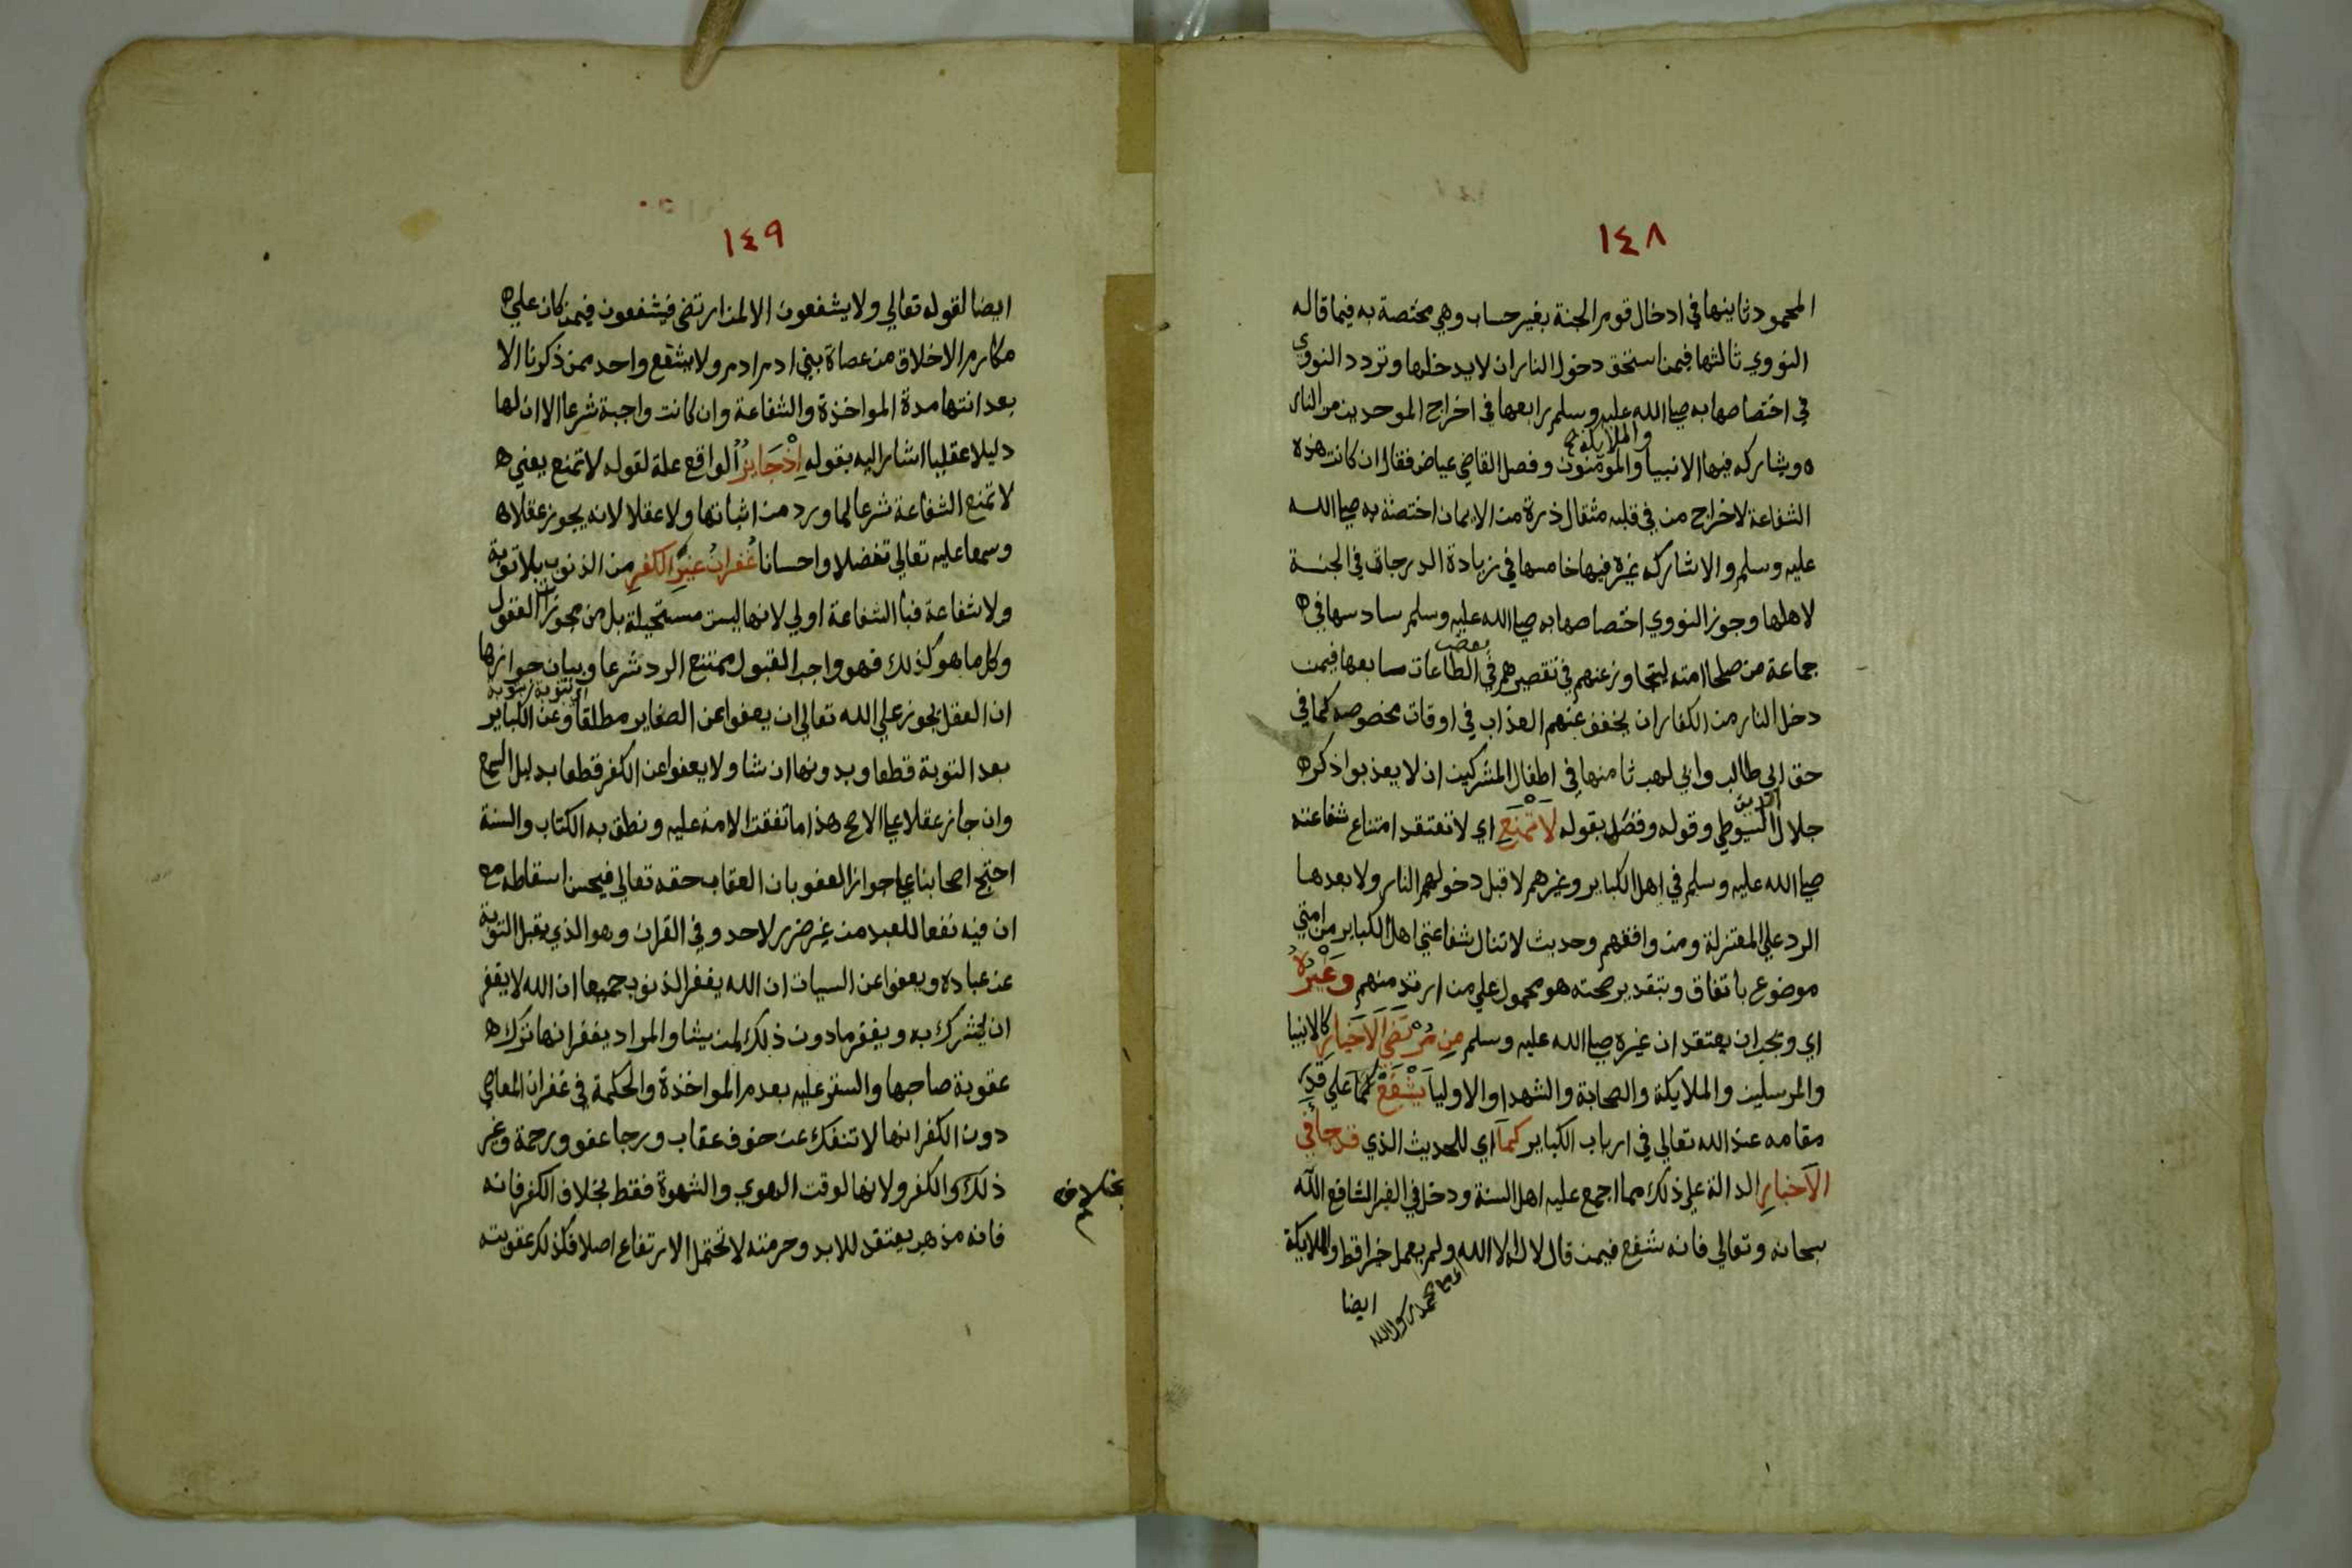 ١٤٨
المحمود ثانيها في ادخال قوم الجنة بغير حساب وهي مختصة به فيما قاله
النووي ثالثها فيمن استحق دخول النار ان لا يدخلها وتردد النووي
في اختصاصها به صلى الله عليه وسلم رابعها في اخراج الموحدين من النار
والملايكة صح
ه ويشاركه فيها الانبيا والمومنون وفصل القاضي عياض فقال ان كانت هذه
الشفاعة لاخراج من في قلبه مثقال ذرة من الايمان اختصت به صلى الله
عليه وسلم والا شاركه غيره فيها خامسها في زيادة الدرجات في الجنة
لاهلها وجوز النووي اختصاصها به صلى الله عليه وسلم سادسها في ه
بعض
جماعة من صلحا امته ليتجاوز عنهم في تقصيرهم في الطاعات سابعها فيمن
دخل النار من الكفار ان يخفف عنهم العذاب في اوقات مخصوصه كما في
حق ابي طالب وابي لهب ثامنها في اطفال المشركين ان لا يعذبوا ذكره
الدين
جلال السيوطي وقوله وفضل بقوله لَا تَمْنَعِ اي لا تعتقد امتناع شفاعته
صلى الله عليه وسلم في اهل الكباير وغيرهم لا قبل دخولهم النار ولا بعدها
الرد علي المعتزلة ومن وافقهم وحديث لا تنال شفاعتي اهل الكباير من امتي
موضوع باتفاق وبتقدير صحته هو محمول علي من ارتد منهم وَغَيْرُهُ
اي ويجب ان يعتقد ان غيره صلى الله عليه وسلم مِن مُرْتَضَي الَاخيَارِ كالانبيا
والمرسلين والملايكة والصحابة والشهدا والاوليا يَشْفَعْ كما علي قدر
مقامه عند الله تعالي في ارباب الكباير كَمَا اي للحديث الذي قد جا في
الَاخبارِ الدالة علي ذلك مما اجمع عليه اهل السنة ودخل في الغير الشافع الله
سبحانه وتعالي فانه شفع فيمن قال لا اله الا الله ولم يعمل خيرا قط والملايكة
محمد رسول الله
ايضا
١٤٩
ايضا لقوله تعالي ولا يشفعون الا لمن ارتضي فيشفعون فيمن كان علي ه
مكارم الاخلاق من عصاة بني ادم ولا يشفع واحد ممن ذكرنا الا
بعد انتها مدة المواخذة والشفاعة وان كانت واجبة شرعا الا ان لها
دليلا عقليا اشار اليه بقوله اِذْ جَايِزٌ الواقع علة لقوله لا تمنع يعني ه
لا تمنع الشفاعة شرعا لما ورد من اثباتها ولا عقلا لانه يجوز عقلا ه
وسمعا عليه تعالي تفضلا واحسانا غُفرانُ غيرِ الكفرِ من الذنوب بلا توبة
ولا شفاعة فبا الشفاعة اولي لانها ليست مستحيلة بل من مجوزات العقول
وكل ما هو كذلك فهو واجب القبول ممتنع الرد شرعا وبيان جوازها
ان العقل يجوز علي الله تعالي ان يعفوا عن الصغاير مطلقا وعن الكباير
بعد التوبة قطعا وبدونها ان شا ولا يعفوا عن الكفر قطعا بدليل السمع
وان جاز عقلا علي الاصح هذا ما اتفقت الامة عليه ونطق به الكتاب والسنة
احتج اصحابنا علي جواز العفو بان العقاب حقه تعالي فيحسن اسقاطه مع
ان فيه نفعا للعبد من غير ضرر لاحد وفي القران وهو الذي يقبل التوبة
عن عباده ويعفوا عن السيات ان الله يغفر الذنوب جميعا ان الله لا يغفر
ان يشرك به ويغفر ما دون ذلك لمن يشا والمراد بغفرانها ترك ه
عقوبة صاحبها والستر عليه بعدم المواخذة والحكمة في غفران المعاصي
دون الكفر انها لا تنفك عن خوف عقاب ورجا عفو ورحمة وغير
ذلك والكفر ولانها لوقت الهوي والشهوة فقط بخلاف الكفر فانه
بخلاف
فانه مذهب يعتقد للابد وحرمته لا تحتمل الارتفاع اصلا فكذلك عقوبته